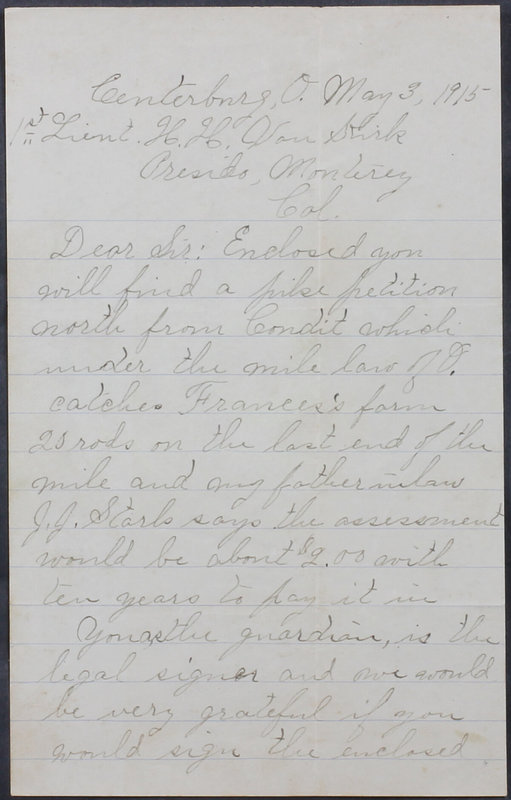 Centerburg, O. May 3, 1915
1st Lieut. H. H. Van Kirk
Presido, Monterey
Cal.
Dear Sir: Enclosed you
will find a pike petition
north from Condit which
under the mile law of O.
catches Frances's farm
25 rods on the last end of the
mile and my father inlaw
J. J. Starls says the assessment
would be about $2.00 with
ten years to pay it in
You, as the guardian, is the
legal signer and we would
be very grateful if you
would sign the enclosed